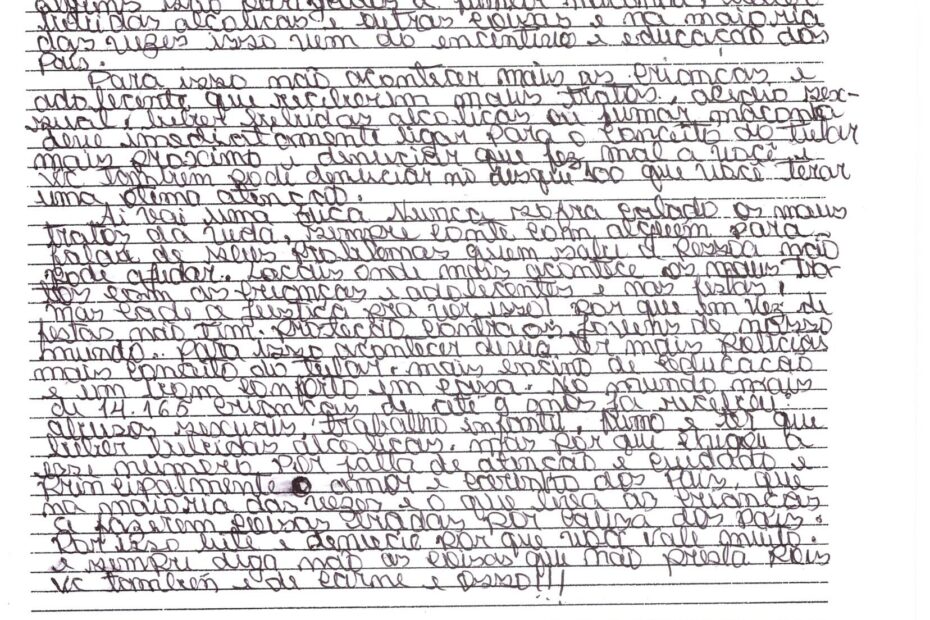 alguns são obrigados a fumar maconha, beber
bebidas alcolicas e outras coisas e na maioria
das vezes isso vem do encentivo e educação dos
pais.
Para isso não acontecer mais as crianças e
adolecente que receberim maus tratos, acedio sex-
sual, beber bebidas alcolicas ou fumar maconha
deve imediatamente ligar para o concelto do tutar
mais proximo e denuciar que fez mal a você e
vc também pode denuciar no disque 100 que você terar
uma otima atenção.
Ai vai uma dica Nunca sofra calado os maus
tratos da vida, sempre conte com algueem para
falar de seus problemas quem sabe a pessoa não
pode ajudar. Locais onde mais acontece os maus tra-
tos com as crianças e adolecentes e nas festas,
mas cade a justiça pra ver isso? por que em vez de
festas não tem proteção contra os jovens de nosso
mundo. Para isso acontecer devia ter mais policias
mais concelto do tutar, mais ensino de educacão
e um bom conforto em casa. No mundo mais
de 14.165 crianças de até 9 anos já receberu
abusos sexuais, trabalho infantil, fumo e ter que
beber bebidas alcolicas. mas por que chegou a
esse numero por falta de atencão e cuidado e
principalmente amor e carinho dos pais, que
na maioria das vezes e o que leva as crianças
a fazerem coisas erradas por causa dos pais.
Por isso lute e denucie por que você vale muito.
e sempre diga não as coisas que não presta pois
vc tambem e de carne e osso!!!